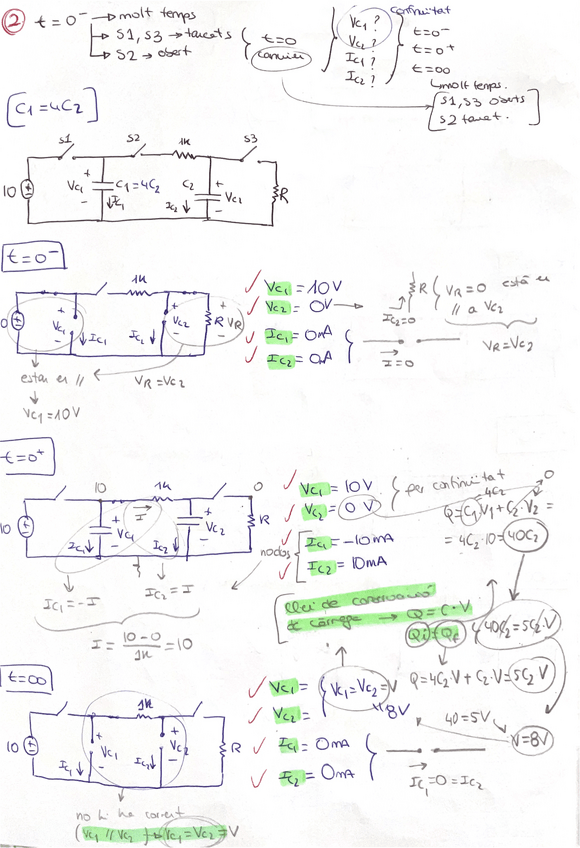 2 t=0⁻ → molt temps
→ S1, S3 → tancats
→ S2 → obert
t=0
canvien
Vc1?
Vc2?
Ic1?
Ic2?
continuïtat
t=0⁻
t=0⁺
t=∞
molt temps.
S1, S3 oberts
S2 tancat.
[C1=4C2]
S1 S2 1K S3
10 + Vc1 - C1=4C2 Ic1 C2 Ic2 + Vc2 - R
t=0⁻
1K
+ Vc1 - Ic1 Ic2 + Vc2 - R + VR -
estan en //
Vc1=10V
VR=Vc2
Vc1 = 10V
Vc2 = 0V →
Ic1 = 0mA
Ic2 = 0mA
I=0
R
Ic2=0
VR=0 està en
// a Vc2
VR=Vc2
t=0⁺
10 1K 0
10 Ic1 + Vc1 - I Ic2 + Vc2 - R
Ic1=-I
Ic2=I
I = 10-0 / 1K = 10
nodos
Vc1 = 10V
Vc2 = 0V
per continuïtat
Ic1 = -10mA
Ic2 = 10mA
4C2 0
Q=C1V1+C2·V2 =
= 4C2·10=40C2
Llei de conservació
de càrrega → Q=C·V
Qi=Qf
40C2=5C2·V
Q=4C2·V+C2·V=5C2V
40=5V
V=8V
t=∞
1K
10 Ic1 + Vc1 - Ic2 + Vc2 - R
no hi ha corrent
(Vc1 // Vc2) → Vc1=Vc2=V
Vc1=
Vc2=
Vc1=Vc2=V
8V
Ic1 = 0mA
Ic2 = 0mA
Ic1=0=Ic2